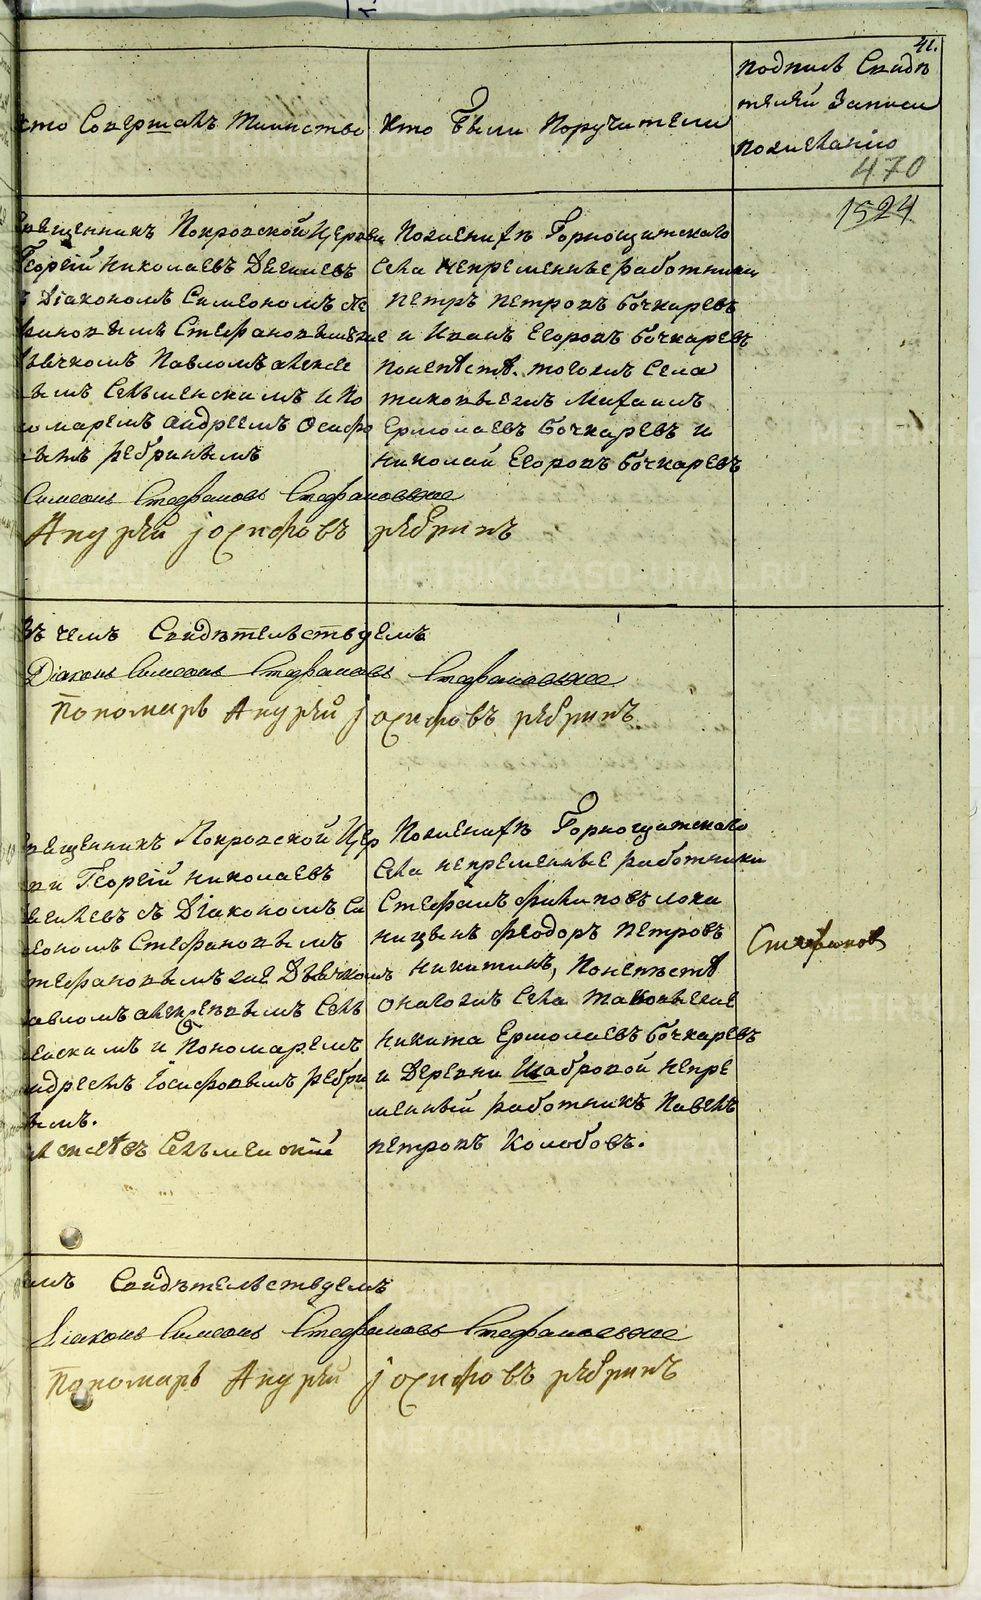 41.
кто Совершалъ Таинство
Кто были Поручители
подпись Свидѣ
телей Записи
по желанію
470
1524
Священникъ Покровской Церкви
Георгій Николаевъ
Діакономъ Симеономъ
Стефановымъ
Павломъ Алексѣе
вымъ Сельменскимъ и По
номаремъ Андреемъ Осифо
вымъ Ребринымъ
По женихѣ Горнощитскаго
села непременные работники
Петръ Петровъ Бочкаревъ
и Иванъ Егоровъ Бочкаревъ
По невѣстѣ того жъ села
таковые жъ Михаилъ
Ермолаевъ Бочкаревъ и
Николай Егоровъ Бочкаревъ
Симеонъ Стефановъ
Андрѣй Іосифовъ рѣбринъ
Въ чемъ Свидѣтельствуемъ
Діаконъ Симеонъ Стефановъ
Пономарь Андрѣй Іосифовъ рѣбринъ
Священникъ Покровской Цер
кви Георгій Николаевъ
съ Діакономъ Си
меономъ Стефановымъ
Павломъ Алексѣевымъ Сель
менскимъ и Пономаремъ
Андреемъ Іосифовымъ Ребри
нымъ.
Алексѣевъ Сельменскій
По женихѣ Горнощитскаго
села непременные работники
Стефанъ Филиповъ
Феодоръ Петровъ
Никитинъ, По невѣстѣ
онагожъ села таковые же
Никита Ермолаевъ Бочкаревъ
и Деревни Шабровой непре
менный работникъ Павелъ
Петровъ Колобовъ.
Стефановъ
Свидѣтельствуемъ
Діаконъ Симеонъ Стефановъ
Пономарь Андрѣй Іосифовъ рѣбринъ
METRIKI.GASO-URAL.RU